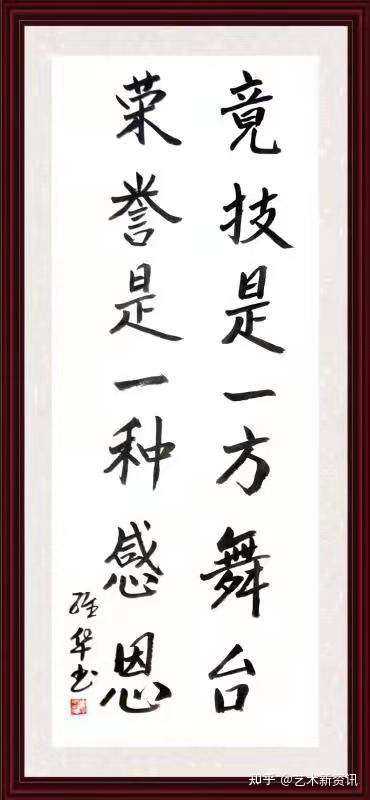 竟技是一方舞台
荣誉是一种感恩
华书
知乎 @艺术新资讯